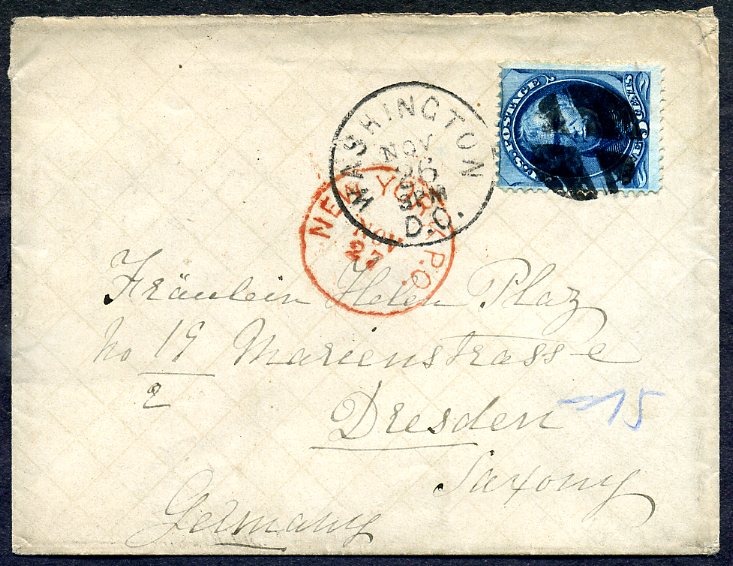 U.S. POSTAGE
WASHINGTON
NOV
26
D.C.
NEW YORK P.O.
NOV
27
Fräulein Helen Plaz
No 19 Marienstrasse
2
Dresden
15
Saxony
Germany